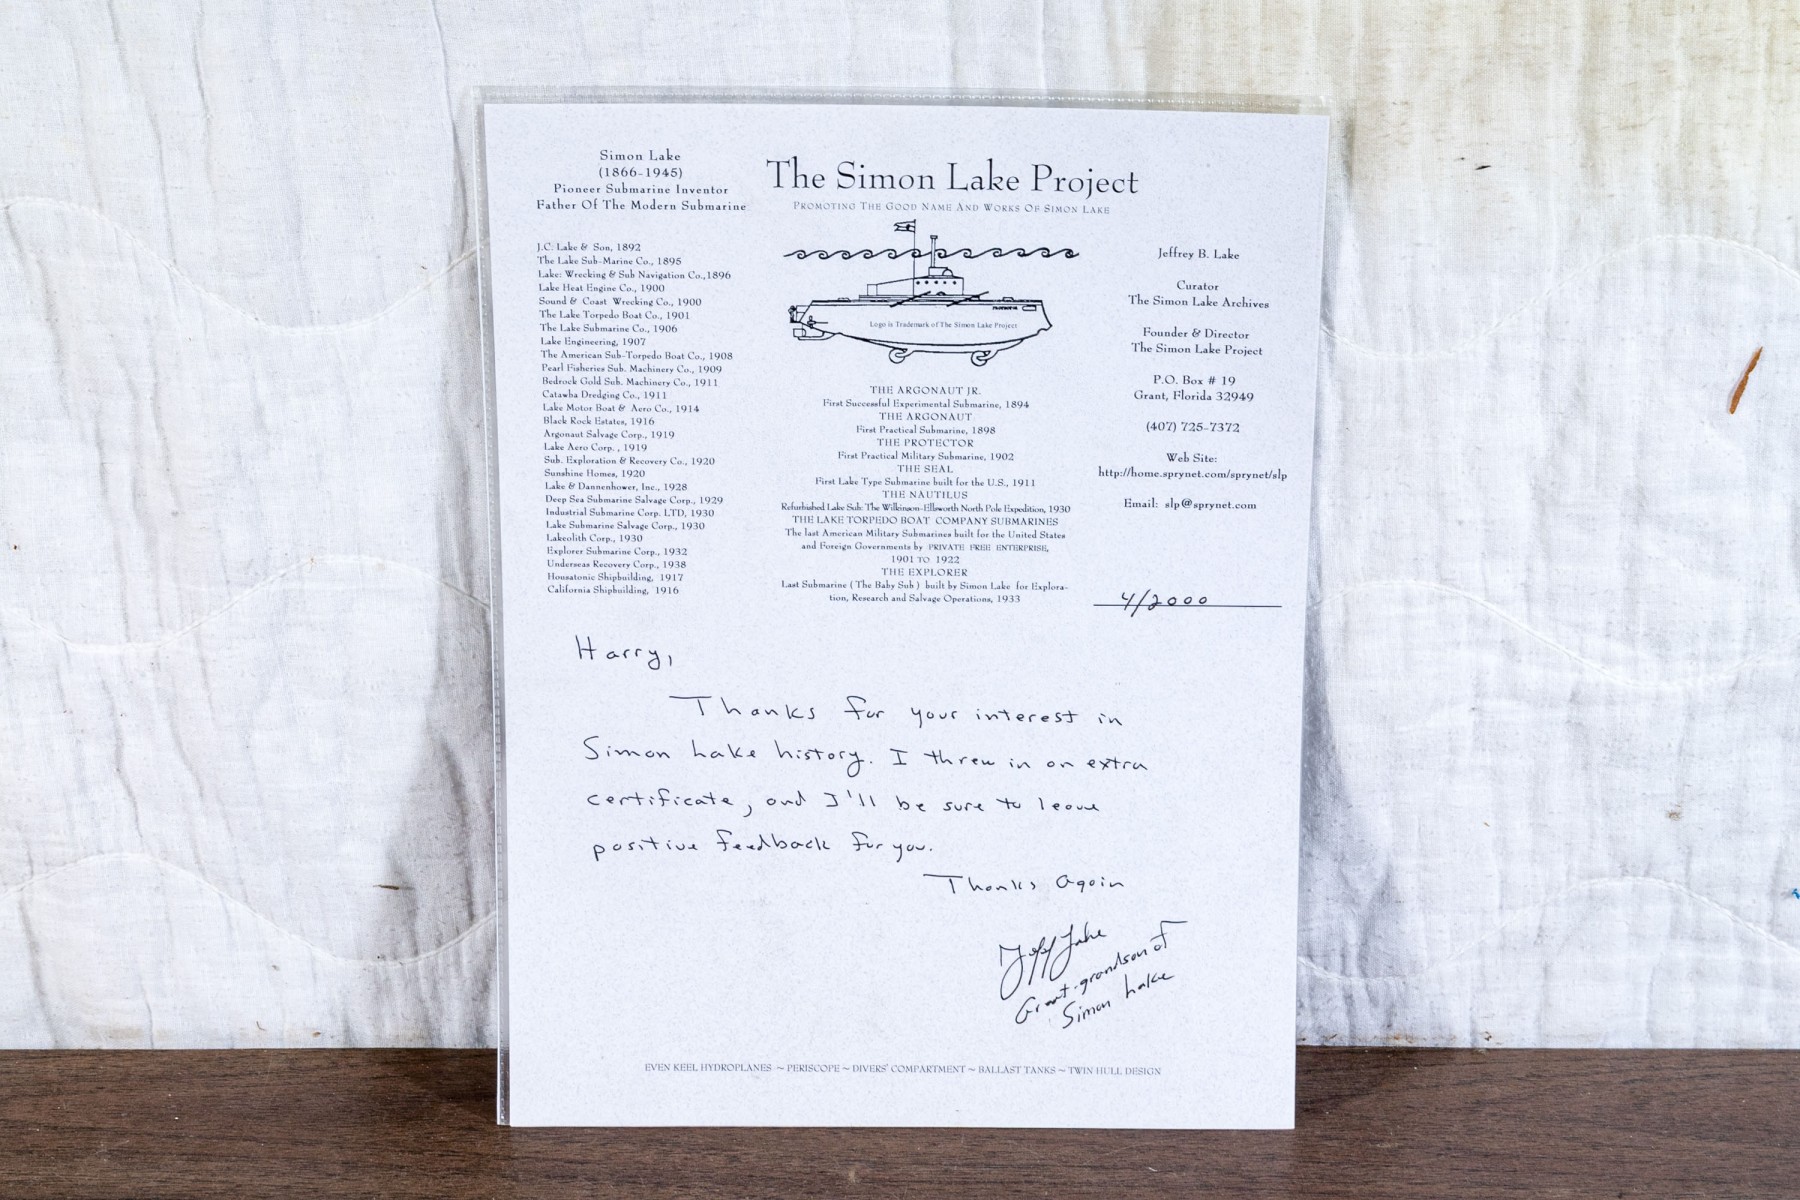 Simon Lake
(1866-1945)
Pioneer Submarine Inventor
Father Of The Modern Submarine
J.C. Lake & Son, 1892
The Lake Sub-Marine Co., 1895
Lake: Wrecking & Sub Navigation Co.,1896
Lake Heat Engine Co., 1900
Sound & Coast Wrecking Co., 1900
The Lake Torpedo Boat Co., 1901
The Lake Submarine Co., 1906
Lake Engineering, 1907
The American Sub-Torpedo Boat Co., 1908
Pearl Fisheries Sub. Machinery Co., 1909
Bedrock Gold Sub. Machinery Co., 1911
Catawba Dredging Co., 1911
Lake Motor Boat & Aero Co., 1914
Black Rock Estates, 1916
Argonaut Salvage Corp., 1919
Lake Aero Corp. , 1919
Sub. Exploration & Recovery Co., 1920
Sunshine Homes, 1920
Lake & Dannenhower, Inc., 1928
Deep Sea Submarine Salvage Corp., 1929
Industrial Submarine Corp. LTD, 1930
Lake Submarine Salvage Corp., 1930
Lakeolith Corp., 1930
Explorer Submarine Corp., 1932
Underseas Recovery Corp., 1938
Housatonic Shipbuilding, 1917
California Shipbuilding, 1916
The Simon Lake Project
PROMOTING THE GOOD NAME AND WORKS OF SIMON LAKE
Logo is Trademark of The Simon Lake Project
THE ARGONAUT JR.
First Successful Experimental Submarine, 1894
THE ARGONAUT
First Practical Submarine, 1898
THE PROTECTOR
First Practical Military Submarine, 1902
THE SEAL
First Lake Type Submarine built for the U.S., 1911
THE NAUTILUS
Refurbished Lake Sub: The Wilkinson-Ellsworth North Pole Expedition, 1930
THE LAKE TORPEDO BOAT COMPANY SUBMARINES
The last American Military Submarines built for the United States
and Foreign Governments by PRIVATE FREE ENTERPRISE,
1901 TO 1922
THE EXPLORER
Last Submarine ( The Baby Sub ) built by Simon Lake for Explora-
tion, Research and Salvage Operations, 1933
Jeffrey B. Lake
Curator
The Simon Lake Archives
Founder & Director
The Simon Lake Project
P.O. Box # 19
Grant, Florida 32949
(407) 725-7372
Web Site:
http://home.sprynet.com/sprynet/slp
Email: slp@sprynet.com
4/2000
Harry,
Thanks for your interest in
Simon Lake history. I threw in an extra
certificate, and I'll be sure to leave
positive feedback for you.
Thanks again
Jeff Lake
Great-grandson of
Simon Lake
EVEN KEEL HYDROPLANES ~ PERISCOPE ~ DIVERS' COMPARTMENT ~ BALLAST TANKS ~ TWIN HULL DESIGN